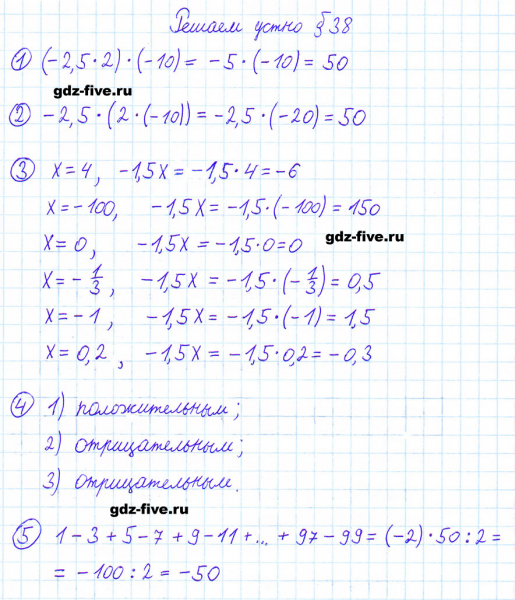 Решаем устно § 38
① (-2,5 · 2) · (-10) = -5 · (-10) = 50
gdz-five.ru
② -2,5 · (2 · (-10)) = -2,5 · (-20) = 50
③ x = 4, -1,5x = -1,5 · 4 = -6
x = -100, -1,5x = -1,5 · (-100) = 150
gdz-five.ru
x = 0, -1,5x = -1,5 · 0 = 0
x = -1/3, -1,5x = -1,5 · (-1/3) = 0,5
x = -1, -1,5x = -1,5 · (-1) = 1,5
x = 0,2, -1,5x = -1,5 · 0,2 = -0,3
④ 1) положительным;
2) отрицательным;
3) отрицательным.
gdz-five.ru
⑤ 1 - 3 + 5 - 7 + 9 - 11 + ... + 97 - 99 = (-2) · 50 : 2 =
= -100 : 2 = -50